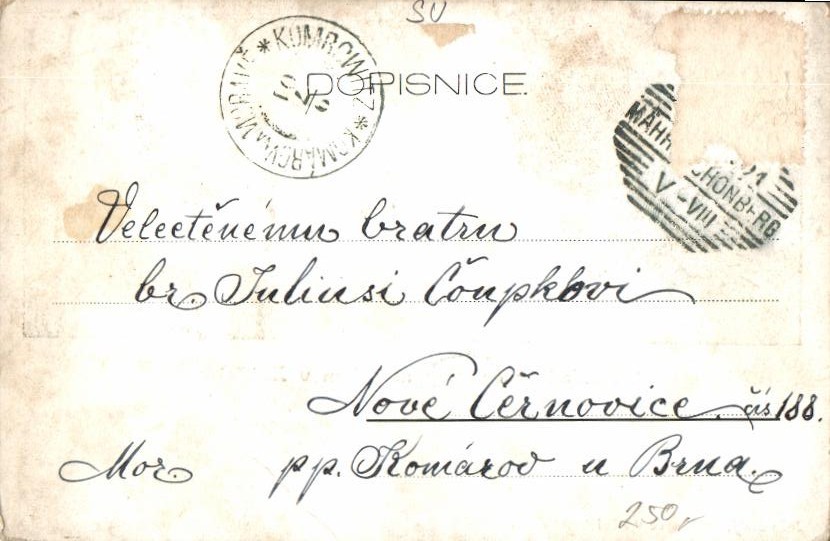 SU
KUMROWITZ * KOMÁROV *
DOPISNICE.
MÄHR. SCHÖNBERG
VIII
Velectěnému bratru
br. Juliusi Čoupkovi
Nové Černovice. čís 188.
Mor. pp. Komárov u Brna.
250,-